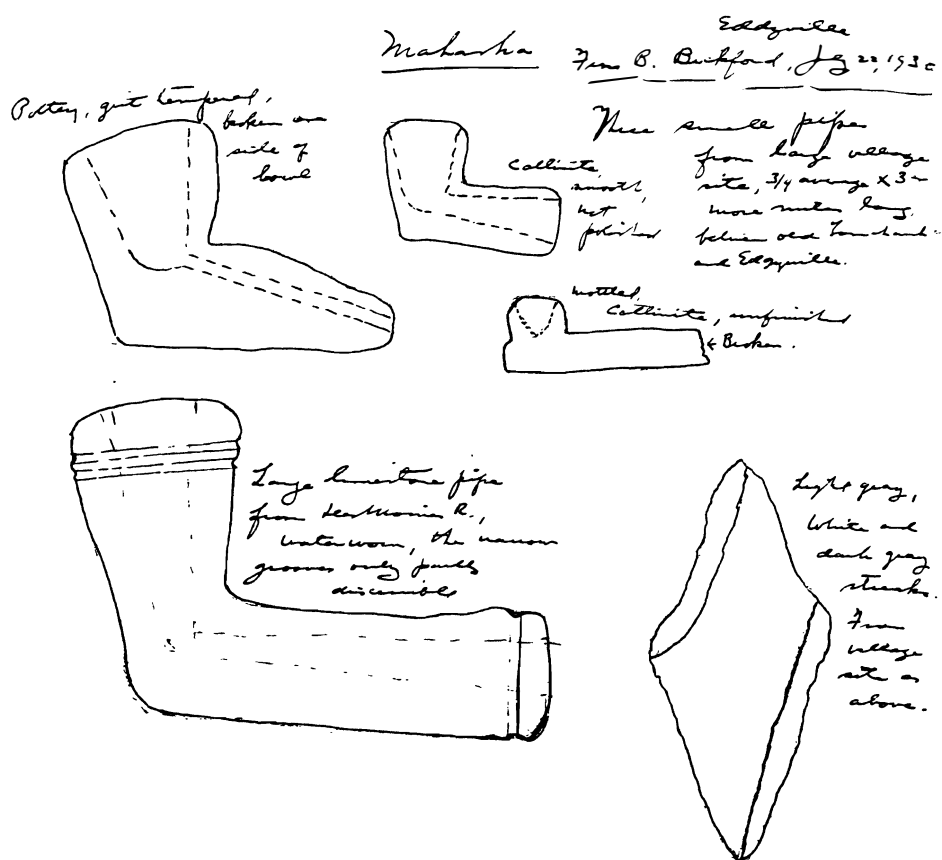 Eddyville
Mahaska From B. Bickford, July 22, 193
Pottery, grit tempered,
broken one
side of
bowl
Catlinite,
smooth,
not
polished
These small pipes
from large village
site, 3/4 average x 3 or
more miles long.
between old
and Eddyville.
mottled,
Catlinite, unfinished
← Broken.
Large limestone pipe
from Des Moines R.,
waterworn, the narrow
grooves only partly
discernible
Light gray,
White and
dark gray
streaks.
From
village
site as
above.